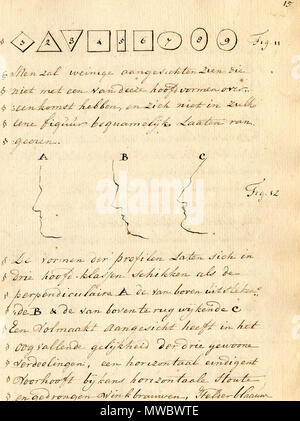 15
1 2 3 4 5 6 7 8 9
Fig. 11
Men zal weinige aangezichten zien die
niet met een van deeze hoofdvormen over-
eenkomst hebben, en zich niet in zulk
eene figuur bequamelijk laaten van
A B C
Fig. 12
De vormen der profilen laten zich in
drie hoofd-klassen schikken als de
perpendiculaire A de van boven uitsteken-
de B & de van boven terug wijkende C
een volmaakt aangezicht heeft in het
oogvallende gelijkheid der drie gewone
verdeelingen, een horizontaal eindigent
voorhooft bijkans horizontaale stoute
en gedrongen winkbrauwen, helder-blaauw
alamy
Image ID: MWBWTE
www.alamy.com